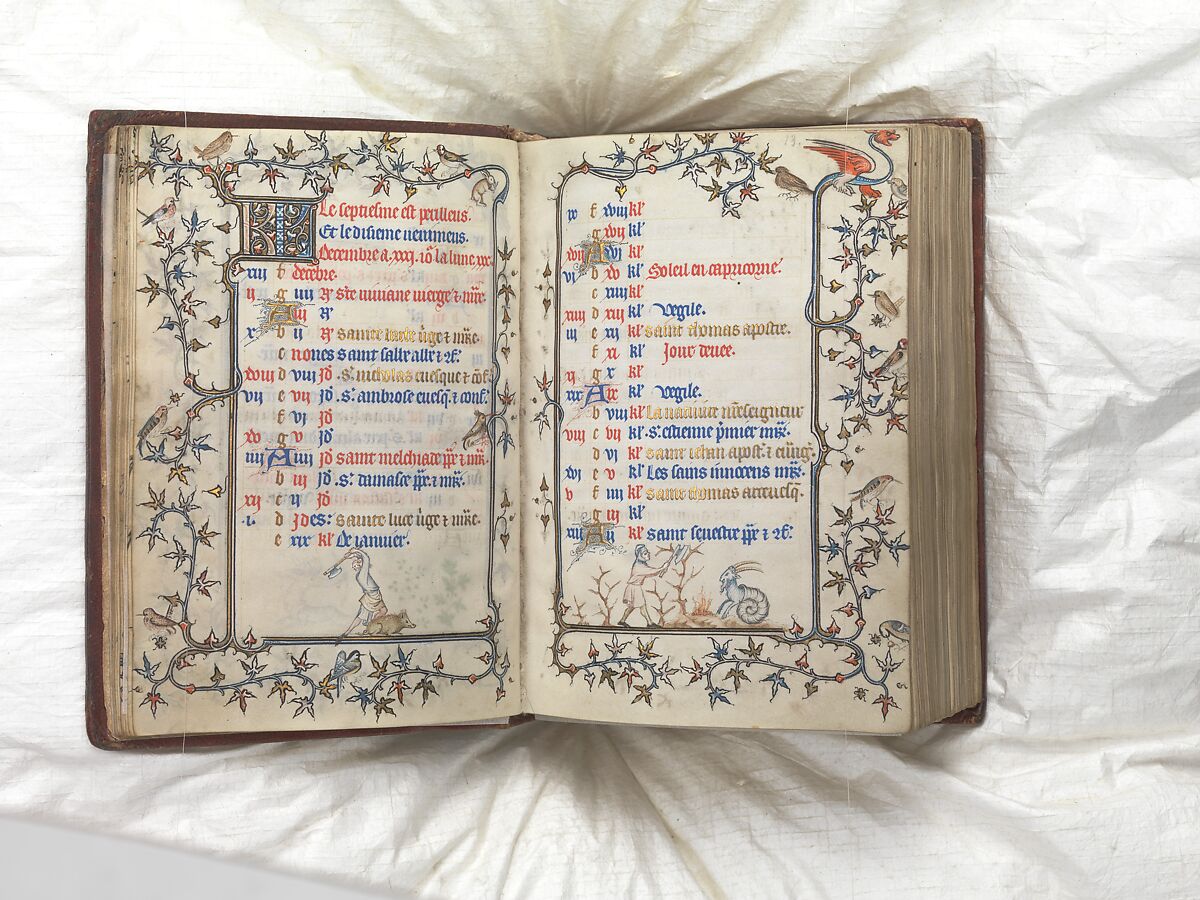 KL
Le septiesme est perilleus.
Et le disieme uenimeus.
Decembre a .xxxj. io. la lune .xxx.
xiij f decebre.
ij g iiij N ste uiuiane uierge & mre.
A iij N
x b ij N sainte barbe uge & mre.
c nones saint
xviij d viij Jd .S. nicholas euesque & cof.
vij e vij Jd .S. ambrose euesq. & conf.
f vj Jd
xv g v Jd
iiij A iiij Jd saint melchiade ppe & mr.
b iij Jd .S. damasce ppe. & mr.
xij c ij Jd
i. d Jdes: sainte luce uge & mre.
e xix kl De ianuier.
73.
ix f xviij kl
g xvij kl
xvij A xvj kl
vj b xv kl Soleil en capricorne.
c xiiij kl
xiiij d xiij kl Vegile.
iij e xij kl saint thomas apostre.
f xj kl Jour
xj g x kl
xix A ix kl Vegile.
b viij kl La natiuite nreseigneur
viij c vij kl S. estienne pmier mr.
d vj kl saint iehan apost. & euug.
xvj e v kl Les sains innocens mr.
v f iiij kl saint thomas arceuesq.
g iij kl
xiij A ij kl saint seuestre ppe & 9f.